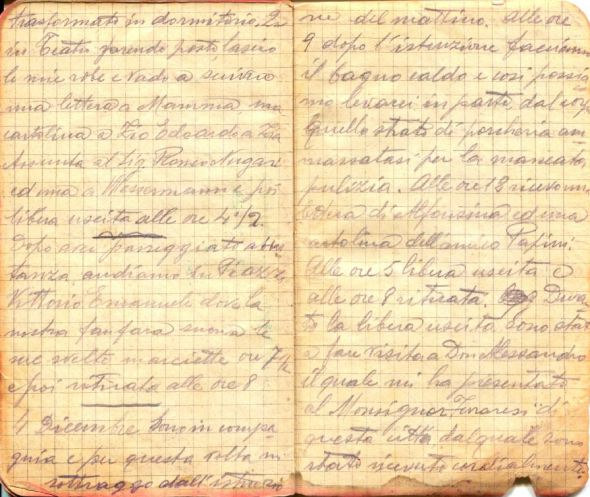 trasformato in dormitorio. In
un Teatro prendo posto lascio
le mie robe e vado a scrivere
una lettera a Mammà, una
cartolina a Zio Edoardo a Zia
Assunta al Sig. Romeo
ed una a Wassermann e poi
libera uscita alle ore 4 1/2.
Dopo aver passeggiato abba
stanza andiamo in Piazza
Vittorio Emanuele dove la
nostra fanfara suona le
sue svelte marciette ore 7 1/2
e poi ritirata alle ore 8
4 Dicembre Sono in compa
gnia e per questa volta mi
sottraggo dall'istruzio
ne del mattino. Alle ore
9 dopo l'istruzione facciamo
il bagno caldo e così possia
mo levarci in parte dal corpo
quello strato di porcheria am
massatasi per la mancata
pulizzia. Alle ore 12 ricevo una
lettera di Alfonsina ed una
cartolina dell'amico
Alle ore 5 libera uscita e
alle ore 8 ritirata. Duran
te la libera uscita sono stato
a fare visita a Don Alessandro
il quale mi ha presentato
al Monsignor di
questa città dal quale sono
stato ricevuto cordialmente.